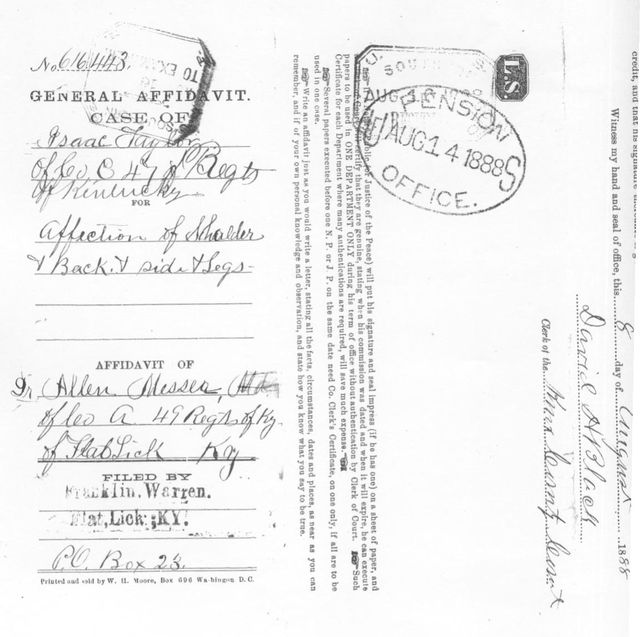 No. 616,443.
GENERAL AFFIDAVIT.
CASE OF
Isaac Taylor
of Co C 47 Regts
of Kentucky
FOR
Affection of Shalder
& Back. & side & Legs-
AFFIDAVIT OF
Dr Allen Messer,
of Co A 49 Regts of Ky
of Flat Lick Ky
FILED BY
Franklin. Warren.
Flat, Lick, KY.
P.O. Box 23.
Printed and sold by W. H. Moore, Box 696 Washingon D. C.
TO EX
U.S. PENSION OFFICE.
AUG 14 1888
L.S
AUG
Justice of the Peace) will put his signature and seal impress (if he has one) on a sheet of paper, and
certify that they are genuine, stating when his commission was dated and when it will expire, he can execute
papers to be used in ONE DEPARTMENT ONLY during his term of office without authentication by Clerk of Court. Such
Certificate for each Department where many authentications are required, will save much expense.
Several papers executed before one N. P. or J. P. on the same date need Co. Clerk's Certificate, on one only, if all are to be
used in one case.
Write an affidavit just as you would write a letter, stating all the facts, circumstances, dates and places, as near as you can
remember, and if of your own personal knowledge and observation, and state how you know what you say to be true.
credit, and that his signature
Witness my hand and seal of office, this 8 day of August 1888
David A Black
Clerk of the Knox County Court